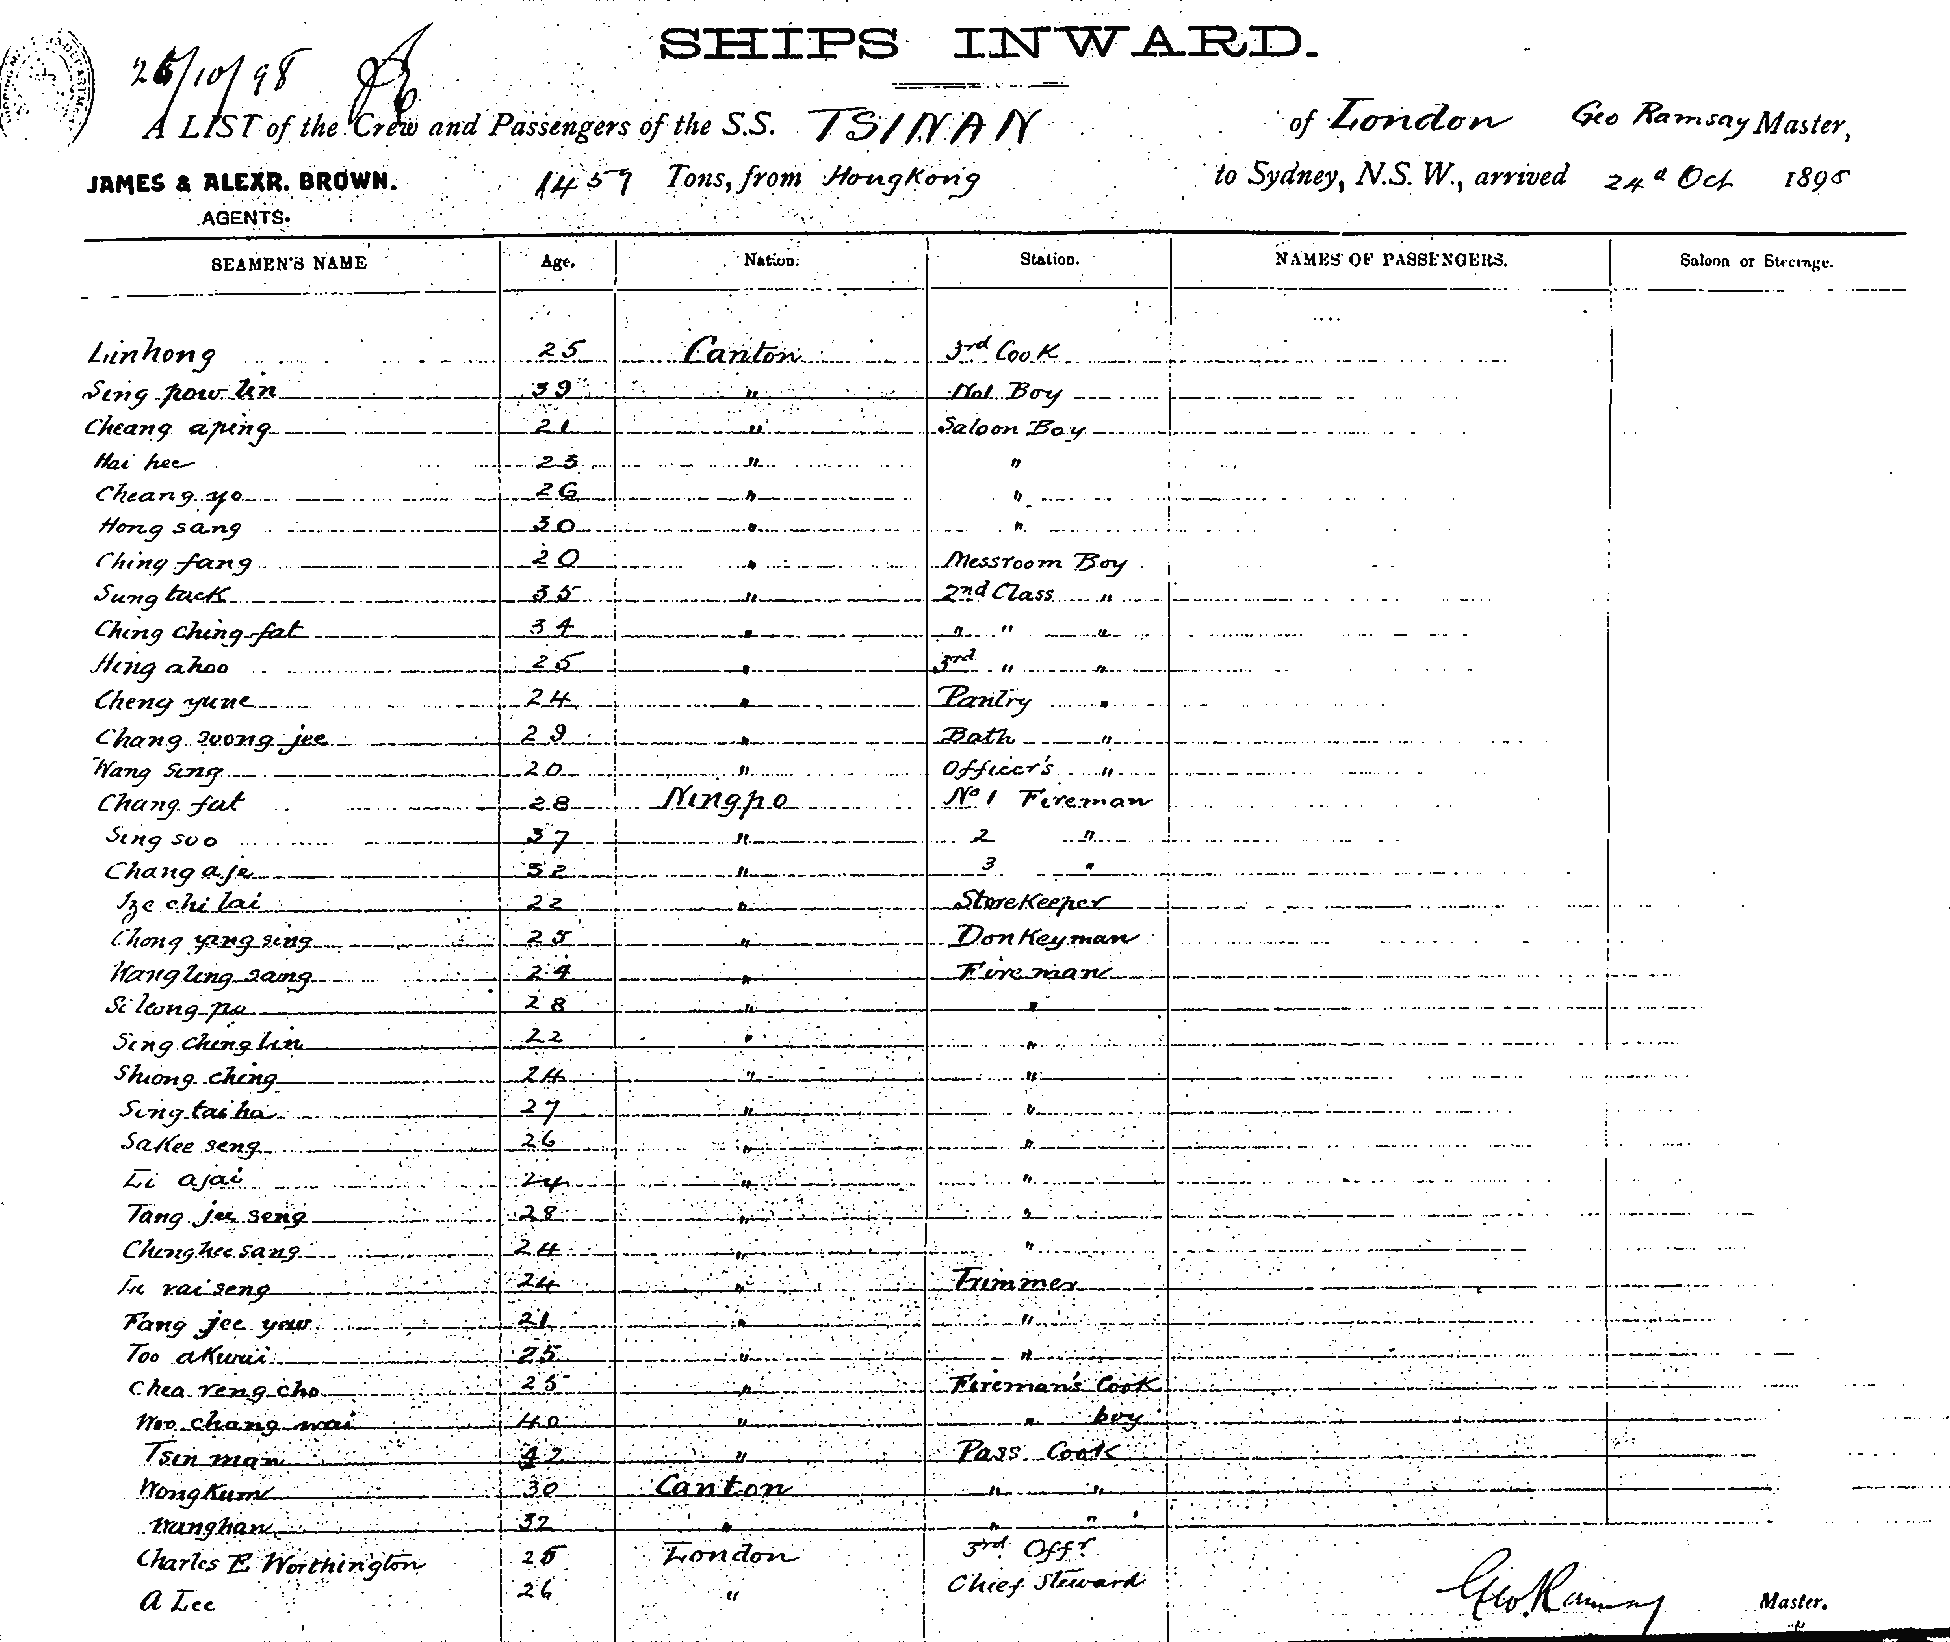 SHIPS INWARD.
25/10/98
A LIST of the Crew and Passengers of the S.S. TSINAN of London Geo Ramsay Master,
JAMES & ALEXR. BROWN. 1459 Tons, from HongKong to Sydney, N.S.W., arrived 24th Oct 1898
AGENTS.
SEAMEN'S NAME Age. Nation. Station. NAMES OF PASSENGERS. Saloon or Steerage.
Linhong 25 Canton 3rd Cook
Sing pow lin 39 " No1 Boy
Cheang aping 21 " Saloon Boy
Hai hee 23 " "
Cheang yo 26 " "
Hong sang 30 " "
Ching fang 20 " Messroom Boy
Sung tack 35 " 2nd Class "
Ching Ching fat 34 " " " "
Hing ahoo 25 " 3rd " "
Cheng yune 24 " Pantry "
Chang soong jee 29 " Bath "
Wang Sing 20 " Officer's "
Chang fat 28 Ningpo No 1 Fireman
Sing soo 37 " 2 "
Chang aje 32 " 3 "
Tze chi lai 22 " StoreKeeper
Chong ying sing 25 " DonKeyman
Wang ling sang 24 " Fireman
Si leong po 28 " "
Sing ching lin 22 " "
Shiong ching 24 " "
Sing tai ha 27 " "
SaKee seng 26 " "
Li ajai 24 " "
Tang jee seng 28 " "
Ching hee sang 24 " "
Lu vai seng 24 " Trimmer
Fang jee yaw 21 " "
Too aKwai 25 " "
Chea veng cho 25 " Fireman's Cook
Woo chang wai 40 " " boy
Tsin man 42 " Pass Cook
Wong Kum 30 Canton " "
Wanghan 32 " " "
Charles E Worthington 25 London 3rd Offr
A Lee 26 " Chief Steward
Geo. Ramsay Master.